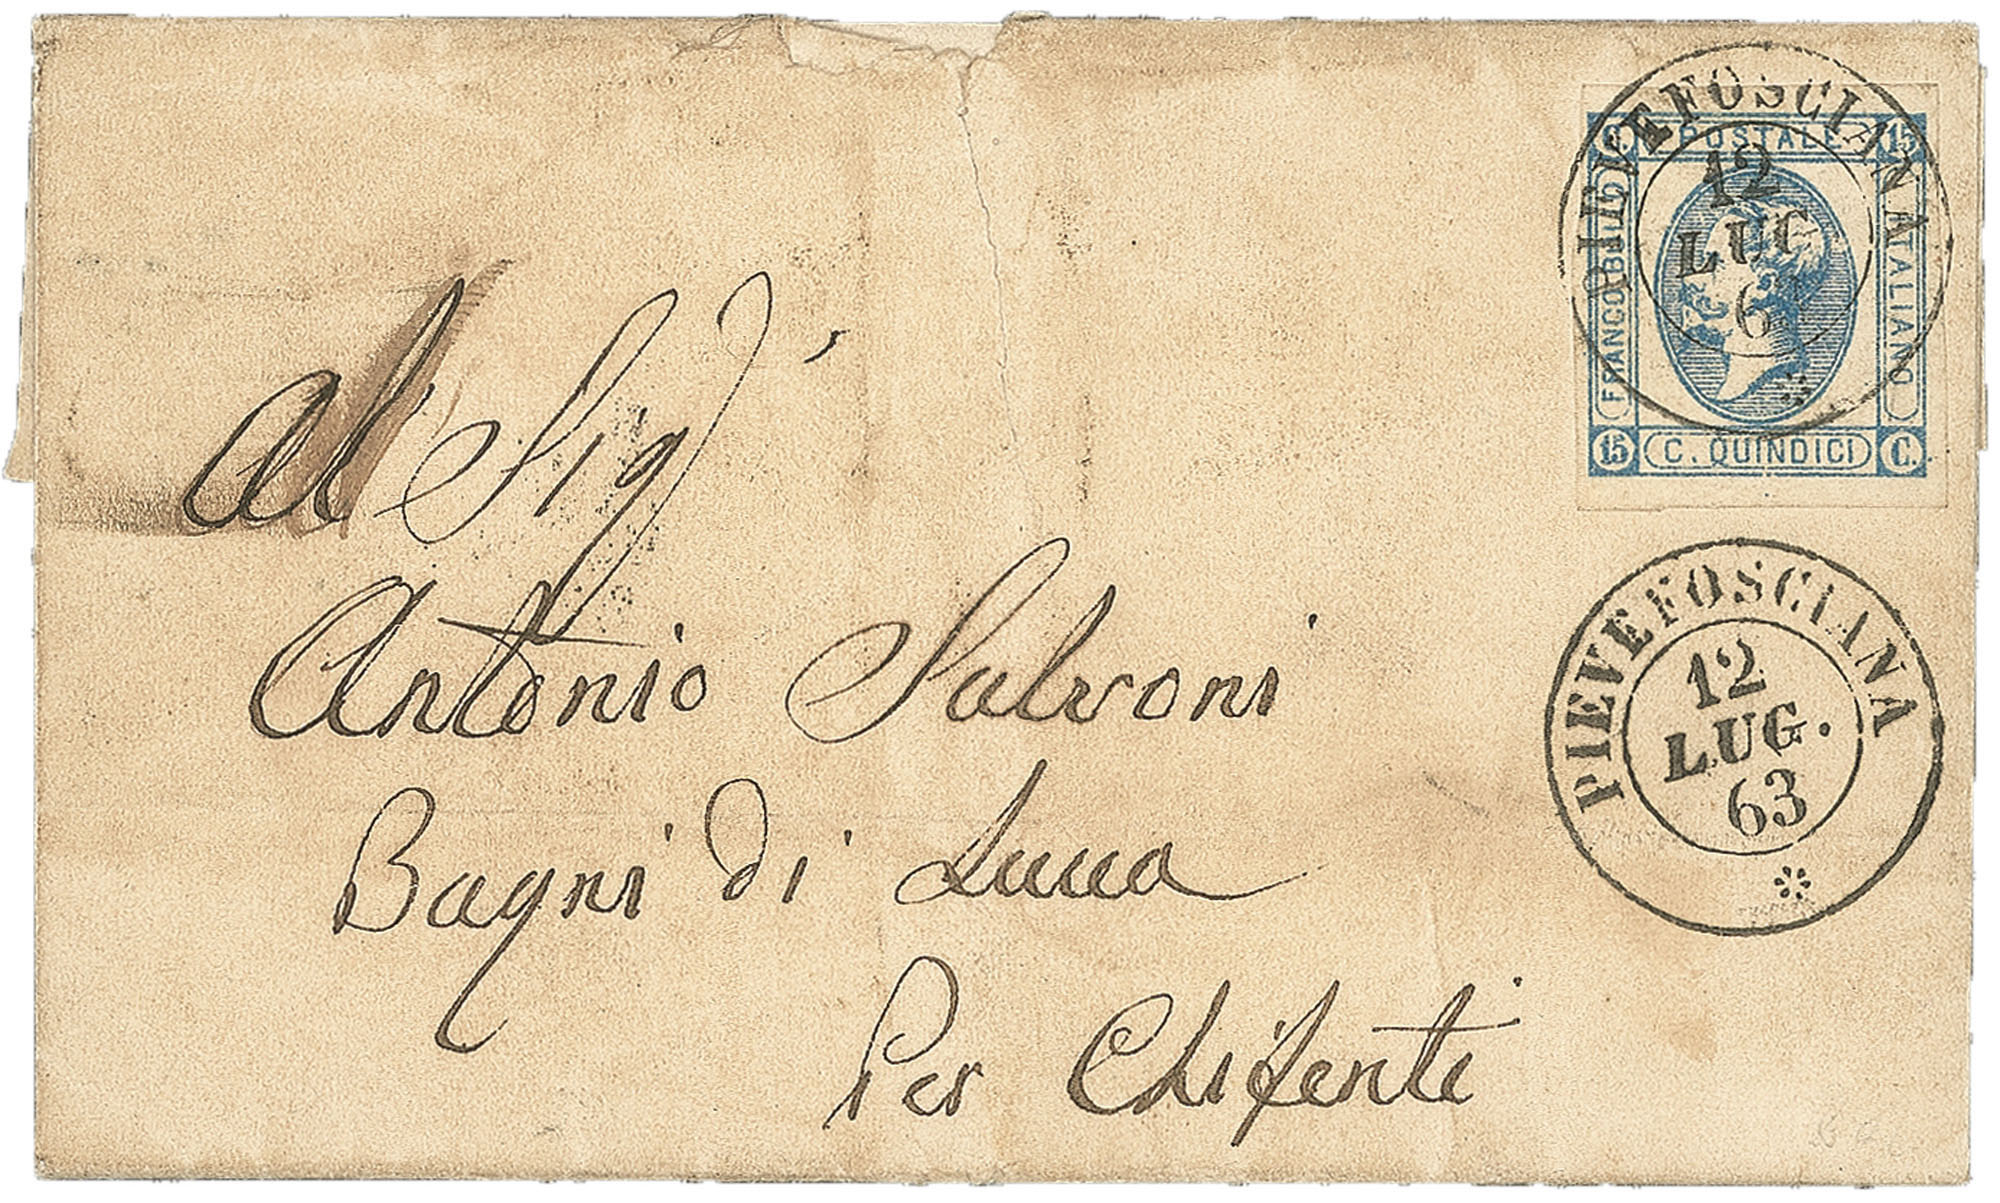 PIEVEFOSCIANA
12
LUG
6
C. POSTALE 15
FRANCO BOLLO
ITALIANO
15 C. QUINDICI C.
Al Sigʳ
Antonio Salvoni
Bagni di Lucca
Per Chifenti
PIEVEFOSCIANA
12
LUG.
63